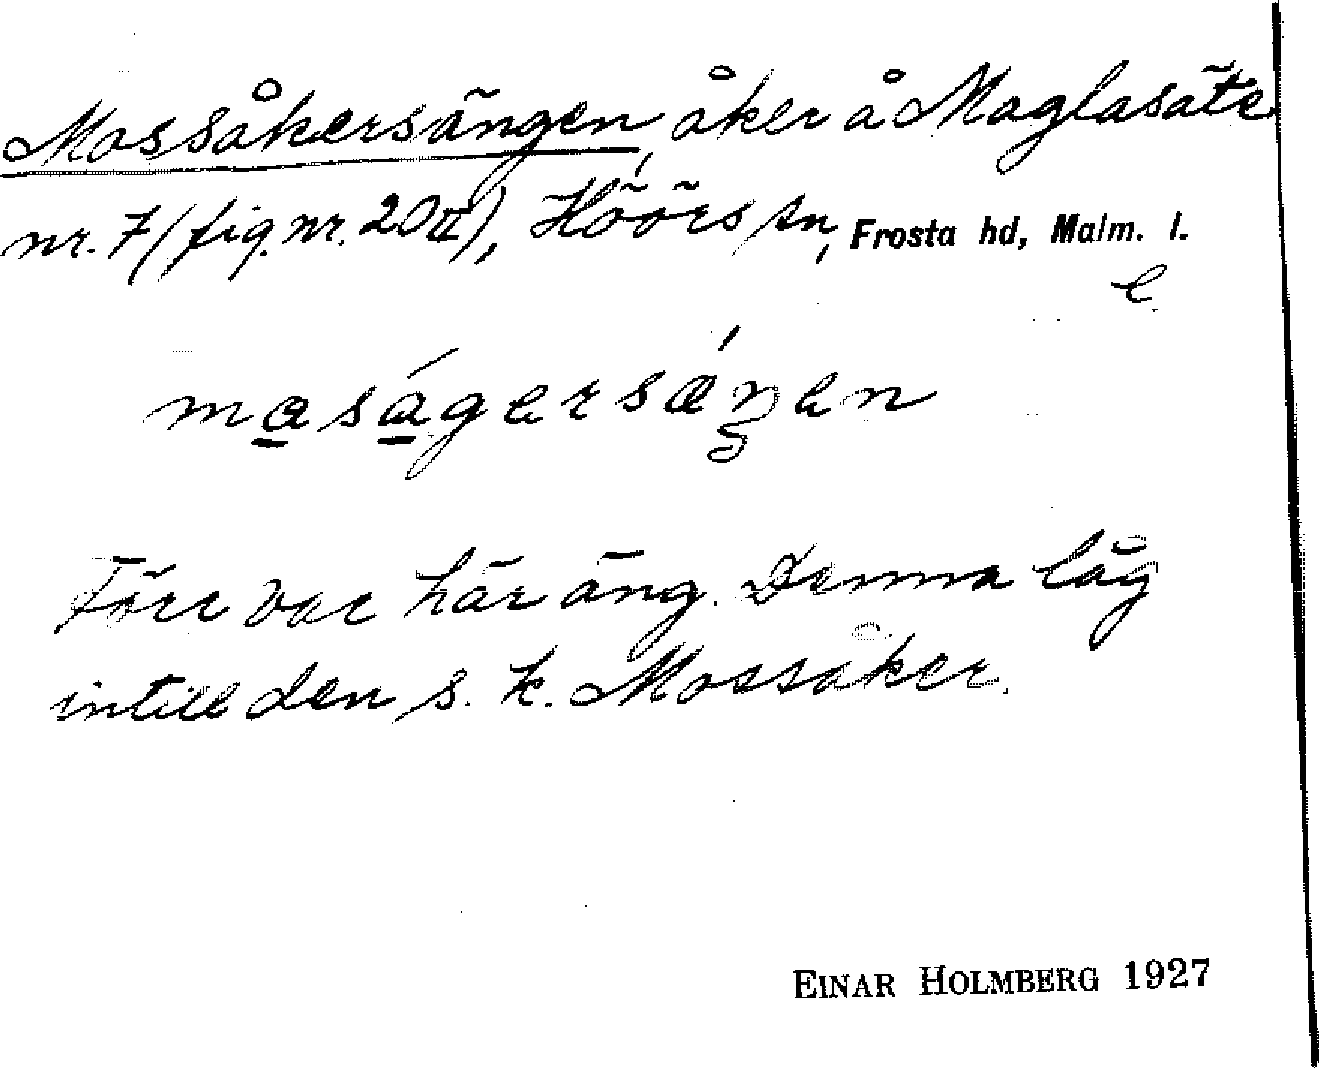 Mossåkersängen, åker å Maglasäte
nr. 7 (fig. nr. 20 II), Höörs sn, Frosta hd, Malm. l.
e.
maságersǽŋen
Förr var här äng. Denna låg
intill den s. k. Mossåker.
EINAR HOLMBERG 1927